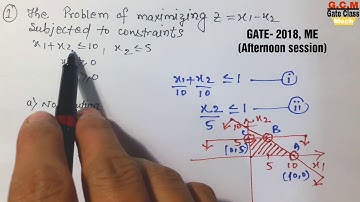 ① The Problem of maximizing z = x₁-x₂
Subjected to constraints
x₁+x₂ ≤ 10, x₂ ≤ 5
0
0
a) No
G.C.M
Gate Class
Mech
GATE- 2018, ME
(Afternoon session)
x₁/10 + x₂/10 ≤ 1 — ⓘ
x₂/5 ≤ 1 — ⓘⓘ
x₂
10
5
C
B
A
(0,5)
5
10
x₁
(10,0)